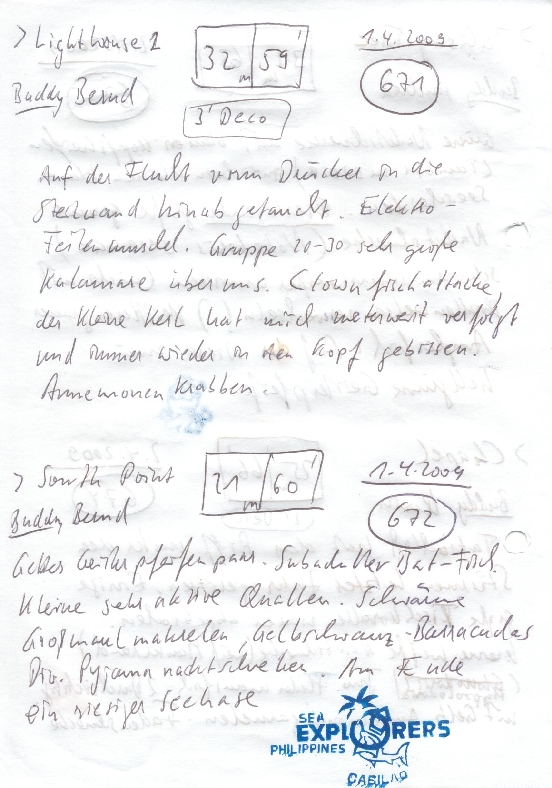 > Lighthouse 1
32 m 59'
1.4.2009
Buddy Bernd
671
3' Deco
Auf der Flucht vorm Drücker an die
Steilwand hinab getaucht. Elektro-
Feilenmuschel. Gruppe 20-30 sehr große
Kalamare über uns. Clownfischattacke,
der kleine Kerl hat mich meterweit verfolgt
und immer wieder in den Kopf gebissen.
Annemonen Krabben.
> South Point
21 m 60'
1.4.2009
Buddy Bernd
672
Gelbes Geisterpfeifenpaar. Subadulter Bat-Fisch.
Kleine sehr aktive Quallen. Schwärme
Großmaulmakrelen, Gelbschwanz-Barracudas
Div. Pyjamanacktschnecken. Am Ende
ein riesiger Seehase
SEA
EXPLORERS
PHILIPPINES
CABILAO